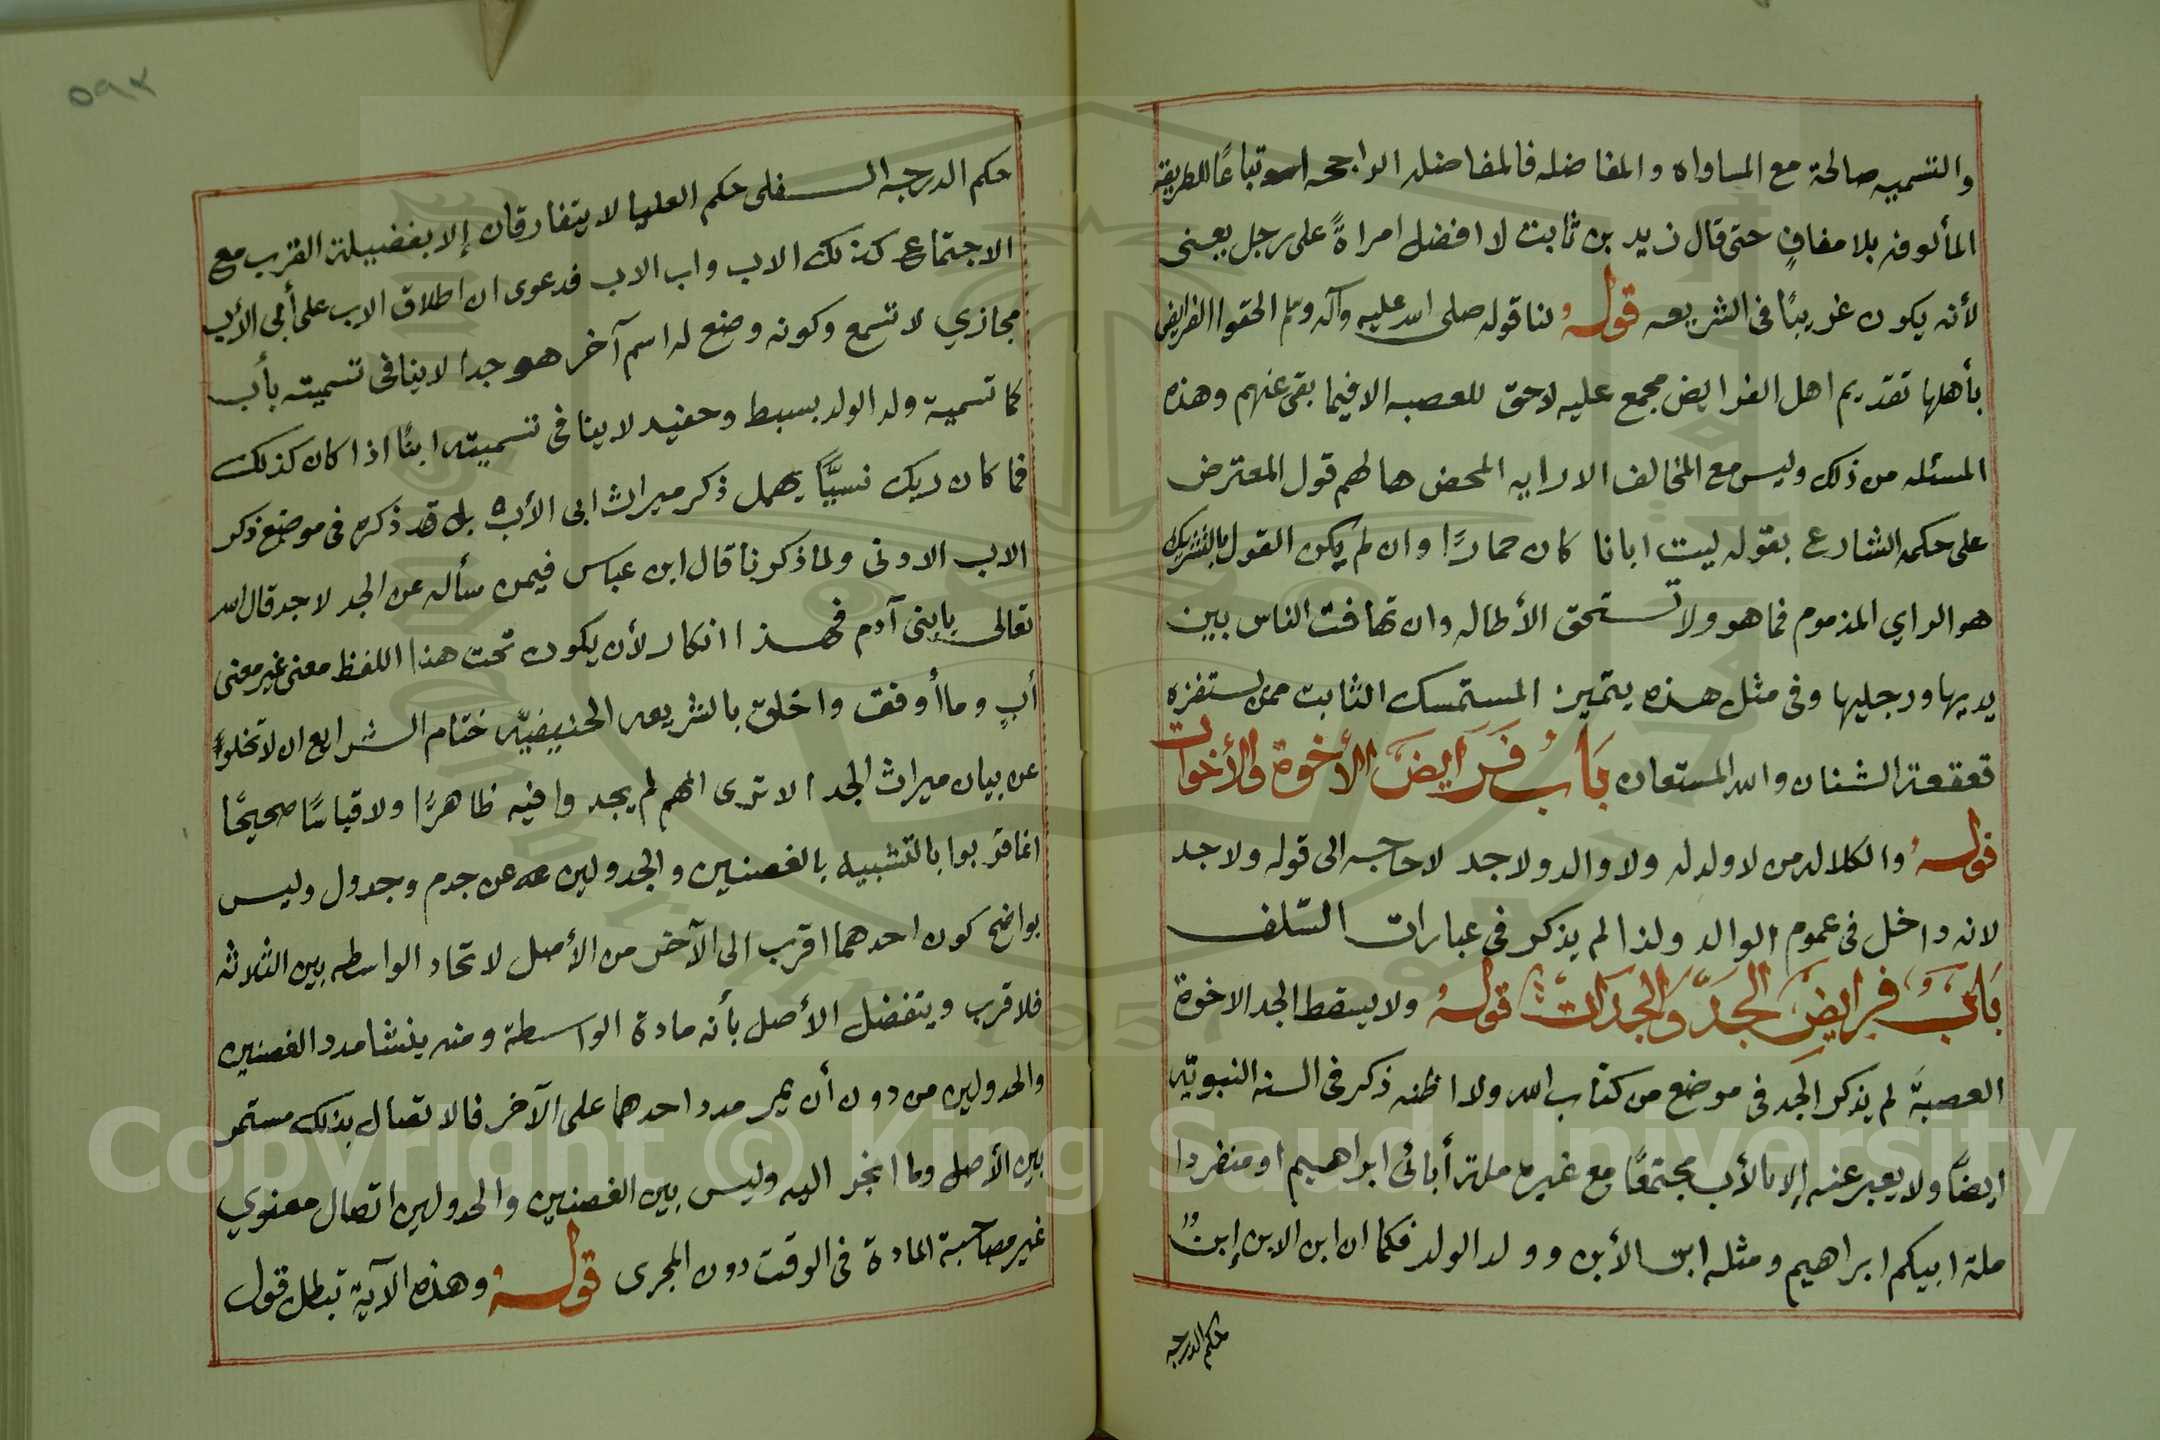 والتسميه صالحة مع المساواه والمفاضله فالمفاضله الراجحه تباعًا للطريقه
المألوفه بلا مفافٍ حتى قال زيد بن ثابت لا افضل امراةً على رجل يعنى
لأنه يكون غريبًا فى الشريعه قوله لنا قوله صلى الله عليه وآله وسلم الحقوا الفرايض
بأهلها تقديم اهل الفرايض مجمع عليه لا حق للعصبه الا فيما بقى عنهم وهذه
المسئله من ذلك وليس مع المخالف الا رايه المحض هالهم قول المعترض
على حكمه الشارع بقوله ليت ابانا كان حمارًا وان لم يكن القول بالتشريك
هو الراي المذموم فما هو ولا تستحق الأطاله وان تهافت الناس بين
يديها ورجليها وفى مثل هذه يتميز المستمسك الثابت ممن تستفزه
قعقعة الشنان والله المستعان بَابُ فَرَايضَ الأخوة والأخوات
قوله والكلاله من لا ولد له ولا والد ولا جد لا حاجه الى قوله ولا جد
لانه داخل فى عموم الوالد ولذا لم يذكر فى عبارات السّلف
بَابُ فرايض الجَدّ والجَدَاتْ قوله ولا يسقط الجد الاخوة
العصبَّة لم يذكر الجد فى موضع من كتاب الله ولا اظنه ذكر فى السنه النبويّه
ايضًا ولا يعبر عنه إلا بالأب مجتمعًا مع غيره ملة أبائى ابراهيم او منفردا
ملة ابيكم ابراهيم ومثله ابن الأبن وولد الولد فكما ان ابن الابن إبنٌ
حكم الدرجه
٥٩٢
حكم الدرجه السفلى حكم العليا لا يتفارقان إلا بفضيلة القرب مع
الاجتماع كذلك الاب واب الاب فدعوى ان اطلاق الاب على أبى الأب
مجازي لا تسمع وكونه وضع له اسم آخر هو جدا لا ينافى تسميته بأب
كما تسمية ولد الولد بسبط وحفيد لا ينافى تسميته ابنًا اذا كان كذلك
فما كان ربك نسيًّا يهمل ذكر ميراث ابى الأب بل قد ذكره فى موضع ذكر
الاب الادنى ولما ذكرنا قال ابن عباس فيمن سأله عن الجد لا جد قال الله
تعالى يابنى آدم فهذا انكار لأن يكون تحت هذا اللفظ معنى غير معنى
أبٍ وما أوفق واخلق بالشريعه الحنيفيّه ختام الشرايع ان لا تخلو
عن بيان ميراث الجد الا ترى انهم لم يجدوا فيه ظاهرًا ولا قياسًا صحيحًا
انما قربوا بالتشبيه بالغصنين والجدولين عن جدم وجدول وليس
بواضح كون احدهما اقرب الى الآخر من الأصل لاتحاد الواسطه بين الثلاثه
فلا قرب ويتفضل الأصل بأنه مادة الواسطة ومنه ينشا مدد الغصنين
والجدولين من دون أن يمر مدد احدهما على الآخر فالاتصال بذلك مستمر
بين الأصل وما انجر اليه وليس بين الغصنين والجدولين اتصال معنوي
غير مصاحبة المادة فى الوقت دون المجرى قوله وهذه الآية تبطل قول